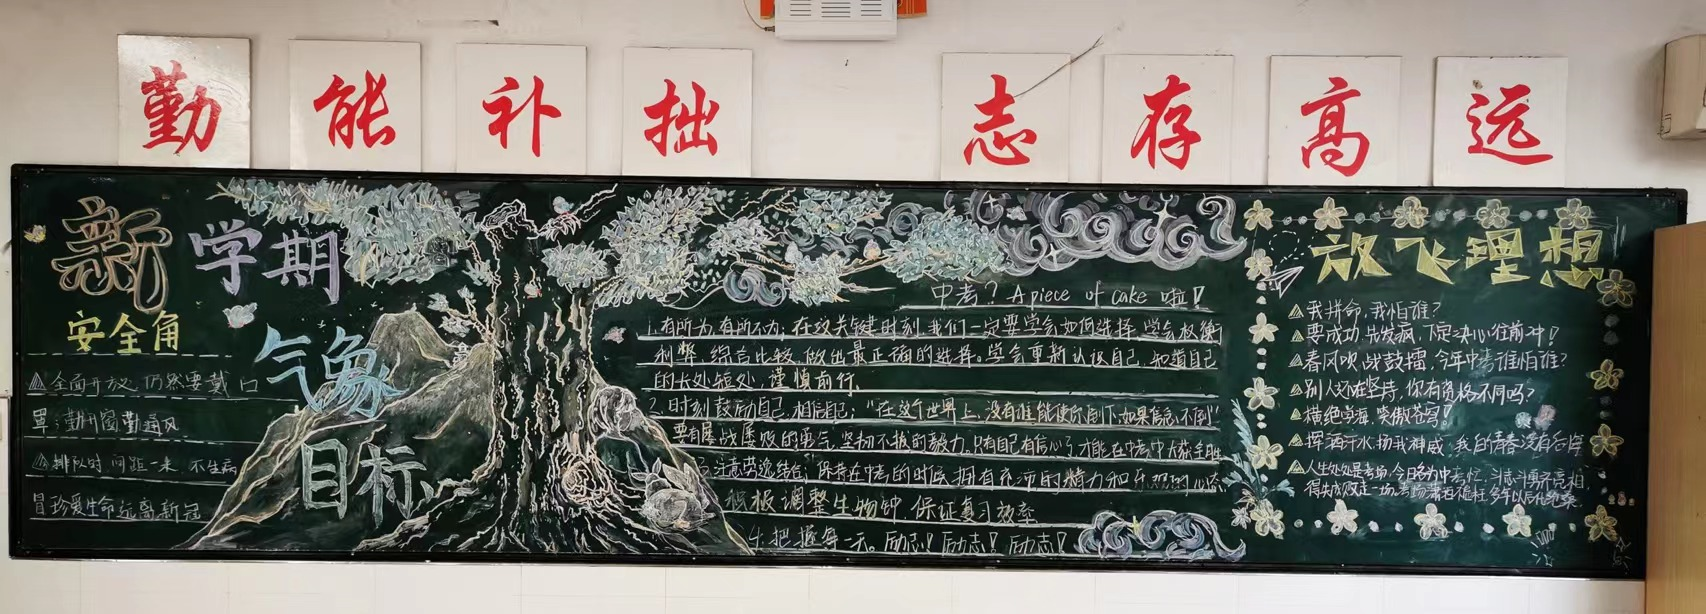 勤能补拙 志存高远
新学期
气象
目标
安全角
全面开放 仍然要戴口
罩,勤开窗勤通风
排队时 间距一米 不生病
冒珍爱生命远离新冠
中考? A piece of cake 啦!
1.有所为,有所不为,在攻关键时刻,我们一定要学会如何选择,学会权衡
利弊,综合比较,做出最正确的选择。学会重新认识自己,知道自己
的长处短处,谨慎前行.
2.时刻鼓励自己,相信自己;“在这个世界上,没有谁能使你倒下,如果信念不倒”
要有屡战屡败的勇气,坚韧不拔的毅力,只有自己有信心了,才能在中考中大获全胜
3.注意劳逸结合;保持在中考的时候拥有充沛的精力和乐观的心态
积极调整生物钟,保证复习效率
4.把握每一天。励志!励志!励志!
放飞理想
我拼命,我怕谁?
要成功,先发疯,下定决心往前冲!
春风吹,战鼓擂,今年中考谁怕谁?
别人还在坚持,你有资格不同吗?
横绝学海,笑傲苍穹!
挥洒汗水,扬我神威,我的青春没有
人生处处是考场,今日各为中考忙,斗志斗勇齐亮相,
得失成败走一场